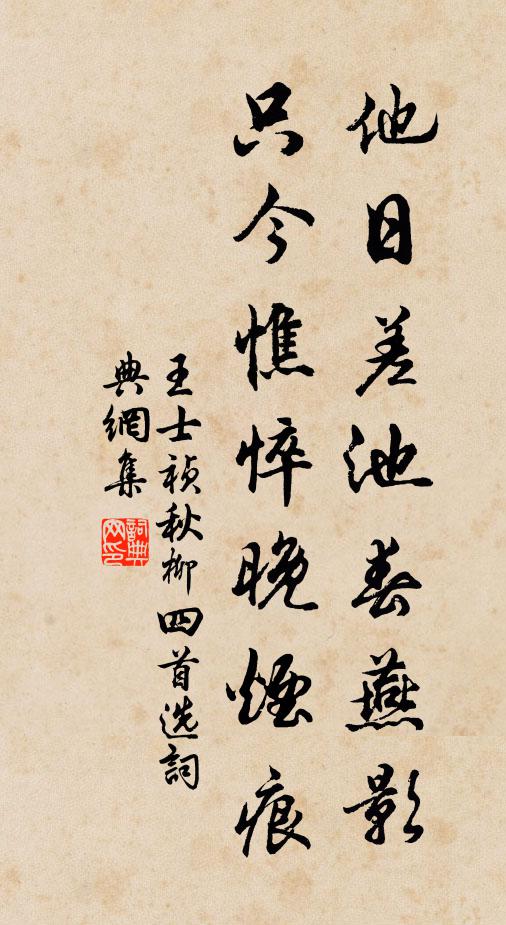 他日差池春燕影
只今憔悴晚煙痕
王士禎秋柳四首选詞
典網集
詞典网印